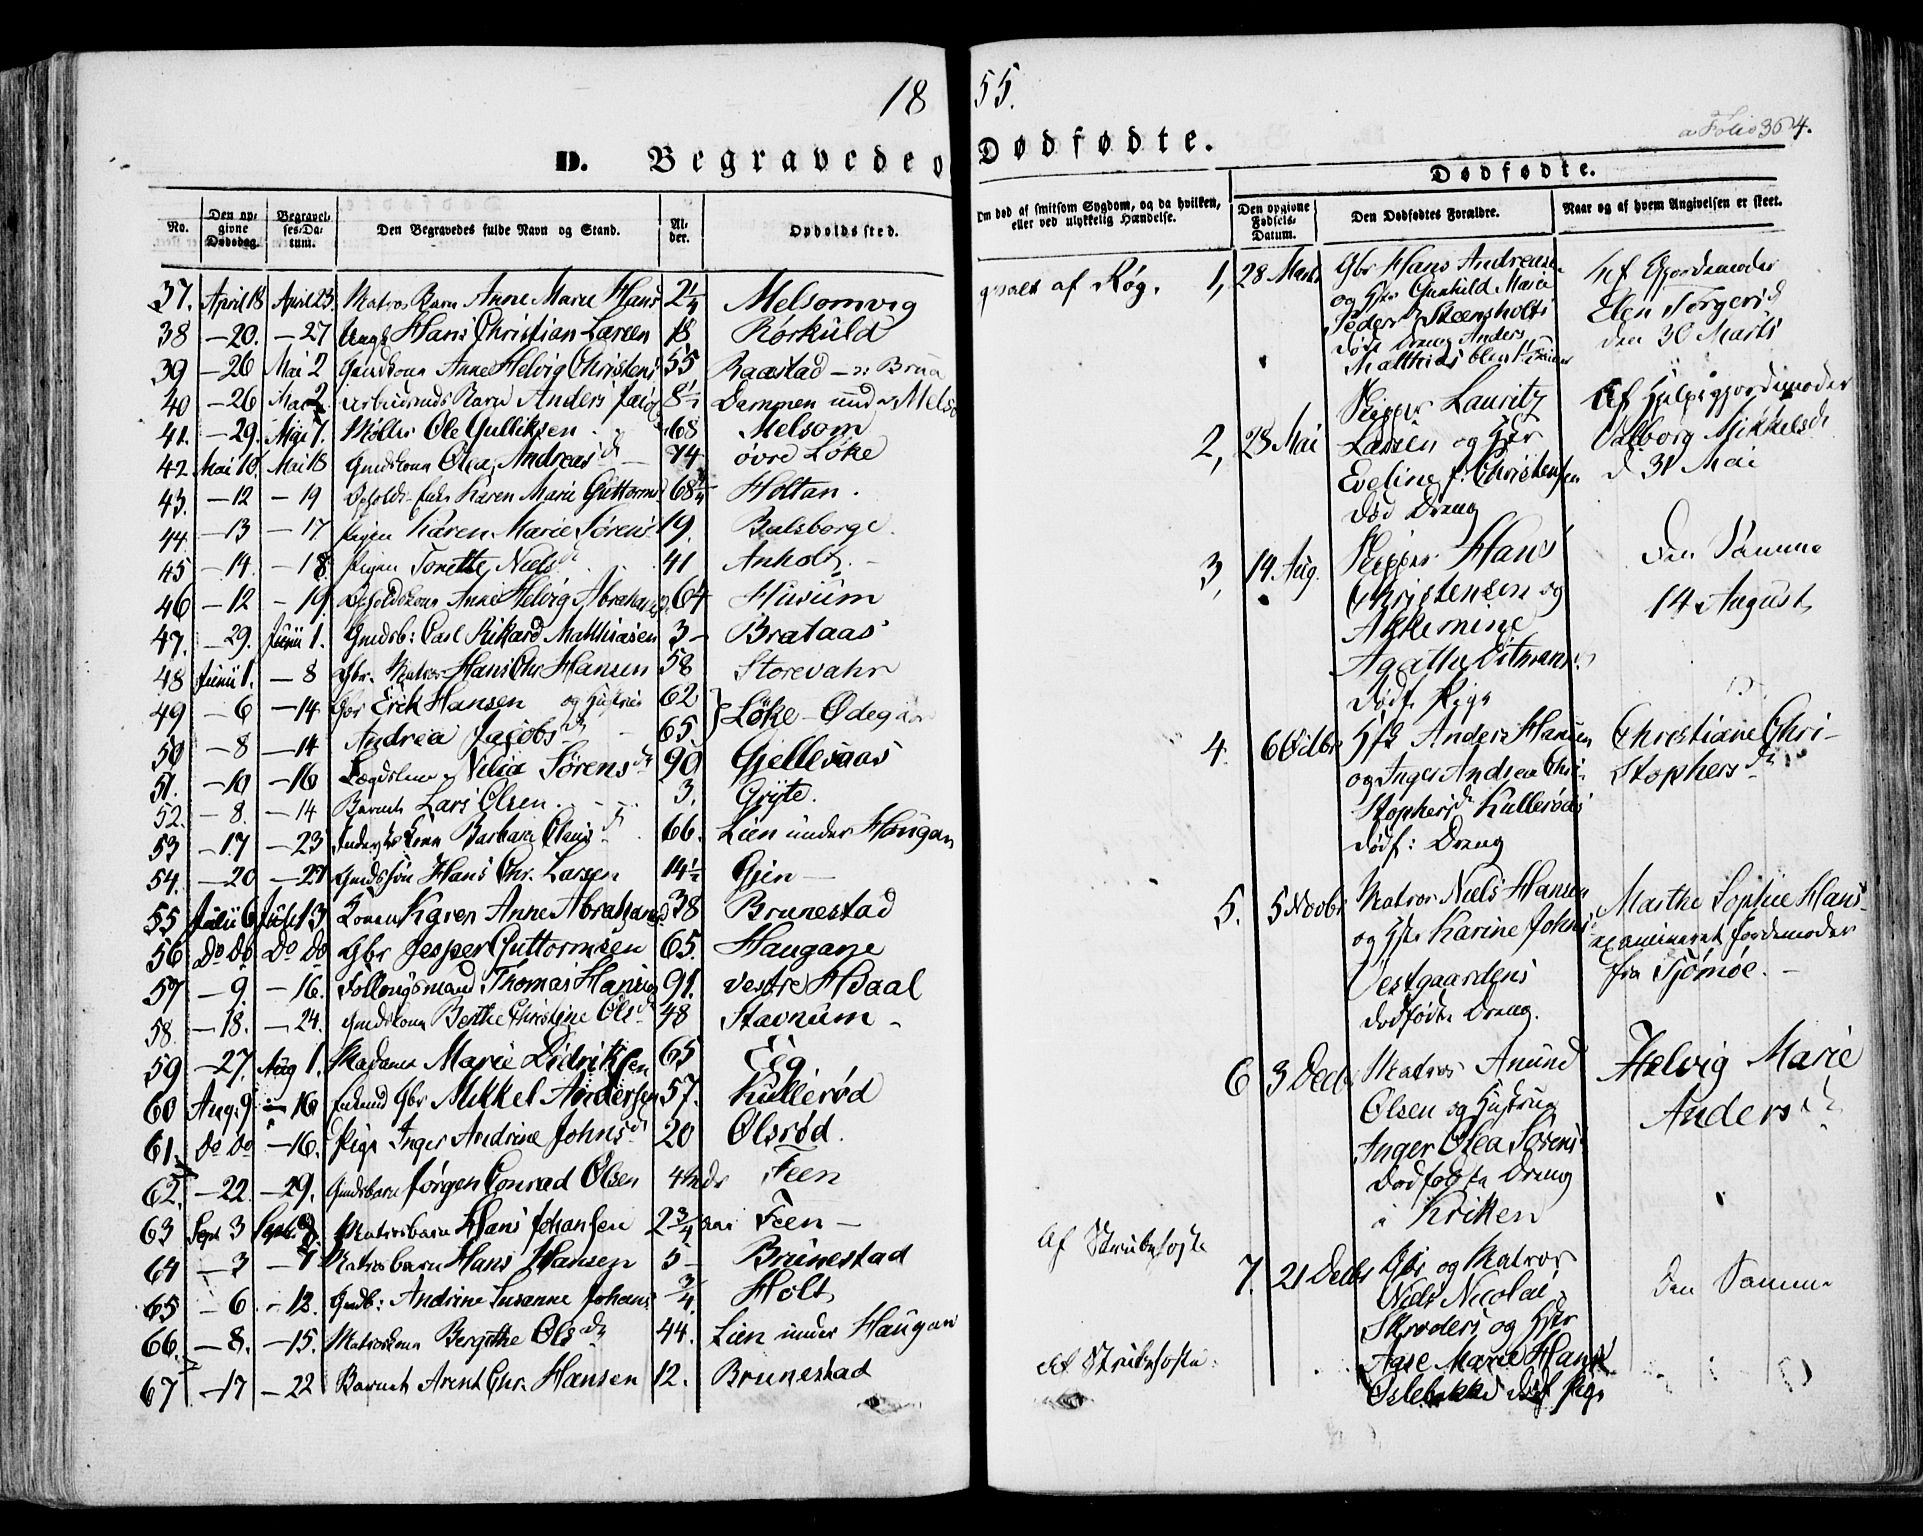 18
55.
a Folio 364.
D. Begravede o
Dødfødte.
No.
Den op-
givne
Dødsdag.
Begravel-
ses-Da-
tum.
Den Begravedes fulde Navn og Stand.
Al-
der.
Opholdssted.
37. April 18 April 23. Matros Barn Anne Marie Hans 2 1/4 Melsomvig
38 — 20. — 27 Ungk Hans Christian Larsen 18 Rørkuld
39 — 26 Mai 2 Gmdskone Anne Helvig Christens 55 Raastad — Brua
40 — 26 Mai 2. Barn Anders 8 1/2 Dammen under Melso
41. — 29. Mai 7. Møller Ole Gulliksen 68 Melsom
42. Mai 10. Mai 18 Gmdskone Olea Andreasd 74 øvre Løke
43. — 12 — 19 Karen Marie Guttorms 68 3/4 Holtan.
44. — 13 — 17 Pigen Karen Marie Sørens 19. Bulsborge.
45 — 14. — 18 Pigen Tonette Nielsd 41 Anholt. —
46 — 12 — 19. Anne Helvig Abrahams 64 Husum
47. — 29. Junii 1. Gmdsb: Carl Rikard Mathiasen 3 — Brataas
48 Junii 1. — 8 Gbr. Matros Hans Chr Hansen 58 Storevahr
49 — 6 — 14 Gbr Erik Hansen og Hustrue 62 Løke — Ødegaar
50 — 8 — 14 Andrea Jacobsd 65.
51. — 10 — 16 Lægdslem Nilia Sørensd 90 Gjellesaas
52. — 8. — 14 Barnet Lars Olsen. 3. Gryte.
53 — 17 — 23 Kone Barbara Olausd 66. Lien under Haugan
54. — 20 — 27 Gmdssøn Hans Chr. Larsen 14 1/2 Gjen —
55 Julii 6 Julii 13 Konen Karen Anne Abrahamsd 38 Brunestad
56 Do Do Do Do Gbr Jesper Guttormsen 65. Haugane
57 — 9. — 16. Follougsmand Thomas Hansen 91. vestre Hvaal
58. — 18. — 24. Gmdskone Berthe Christine Olsd 48 Stavnum —
59 — 27. Aug 1. Madame Marie Didriksen 65 Eeg
60 Aug. 9 — 16 Gbr Mikkel Andersen 57. Kullerød
61. Do Do — 16. Pige Inger Andrine Johnsd 20 Ølsrød.
62. — 22. — 29. Gmdsbarn Jørgen Conrad Olsen 4 Feen
63 Sept 3 Septb. 8 Matrosbarn Hans Johansen 2 3/4 aar Feen —
64 — 3 — 9 Matrosbarn Hans Hansen 5 — Brunestad
65 — 6. — 12. Gmdb: Andrine Susanne Johans 3/4. Holt
66. — 8. — 15. Matroskone Bergithe Olsd 44. Lien under Haugan
67 — 17 — 22 Barnet Arent Chr. Hansen 12. Brunestad
Om død af smitsom Sygdom, og da hvilken,
eller ved ulykkelig Hændelse.
qvalt af Røg.
Af Strubehoste
det Strubehoste.
Dødfødte.
Den opgivne
Fødsels-
Datum.
Den Dødfødtes Forældre.
Naar og af hvem Angivelsen er skeet.
1, 28 Marts Gbr Hans Andreasen
og Hstr Gunhild Marie
Peders Steensholts
dødf Dreng Anders
Matthias
af Gjordemoder
Elen Torgersd
den 30 Marts
2, 28 Mai Skipper Lauritz
Larsen og Hstr
Eveline f. Christensen
død Dreng
Af Hjelpegjordemoder
Valborg Mikkelsd
d 31 Mai
3, 14 Aug. Skipper Hans
Christensen og
Akkemine
Agathe Ditmans
dødf. Pige
den Samme
14 August
4. 6 Octbr Hfd Anders Hansen
og Inger Andrea Chri-
stophersd Kullerøds
dødf: Dreng
Christiane Chri-
stophersd
5. 5 Novbr Matros Niels Hansen
og Hstr Karine Johns
Vestgaardens
dødfødte Dreng.
Marthe Sophie Hans-
examineret Jordemoder
fra Tjømøe. —
6 3 Decbr Matros Anund
Olsen og Hustrue
Inger Olea Sørens
dødfødte Dreng
i Kriken
Helvig Marie
Andersd
7. 21 Decbr Gbr og Matros
Niels Nicolai
Skrøders og Hstr
Aase Marie Hans
Oslebakke dødf Pige
den Samme